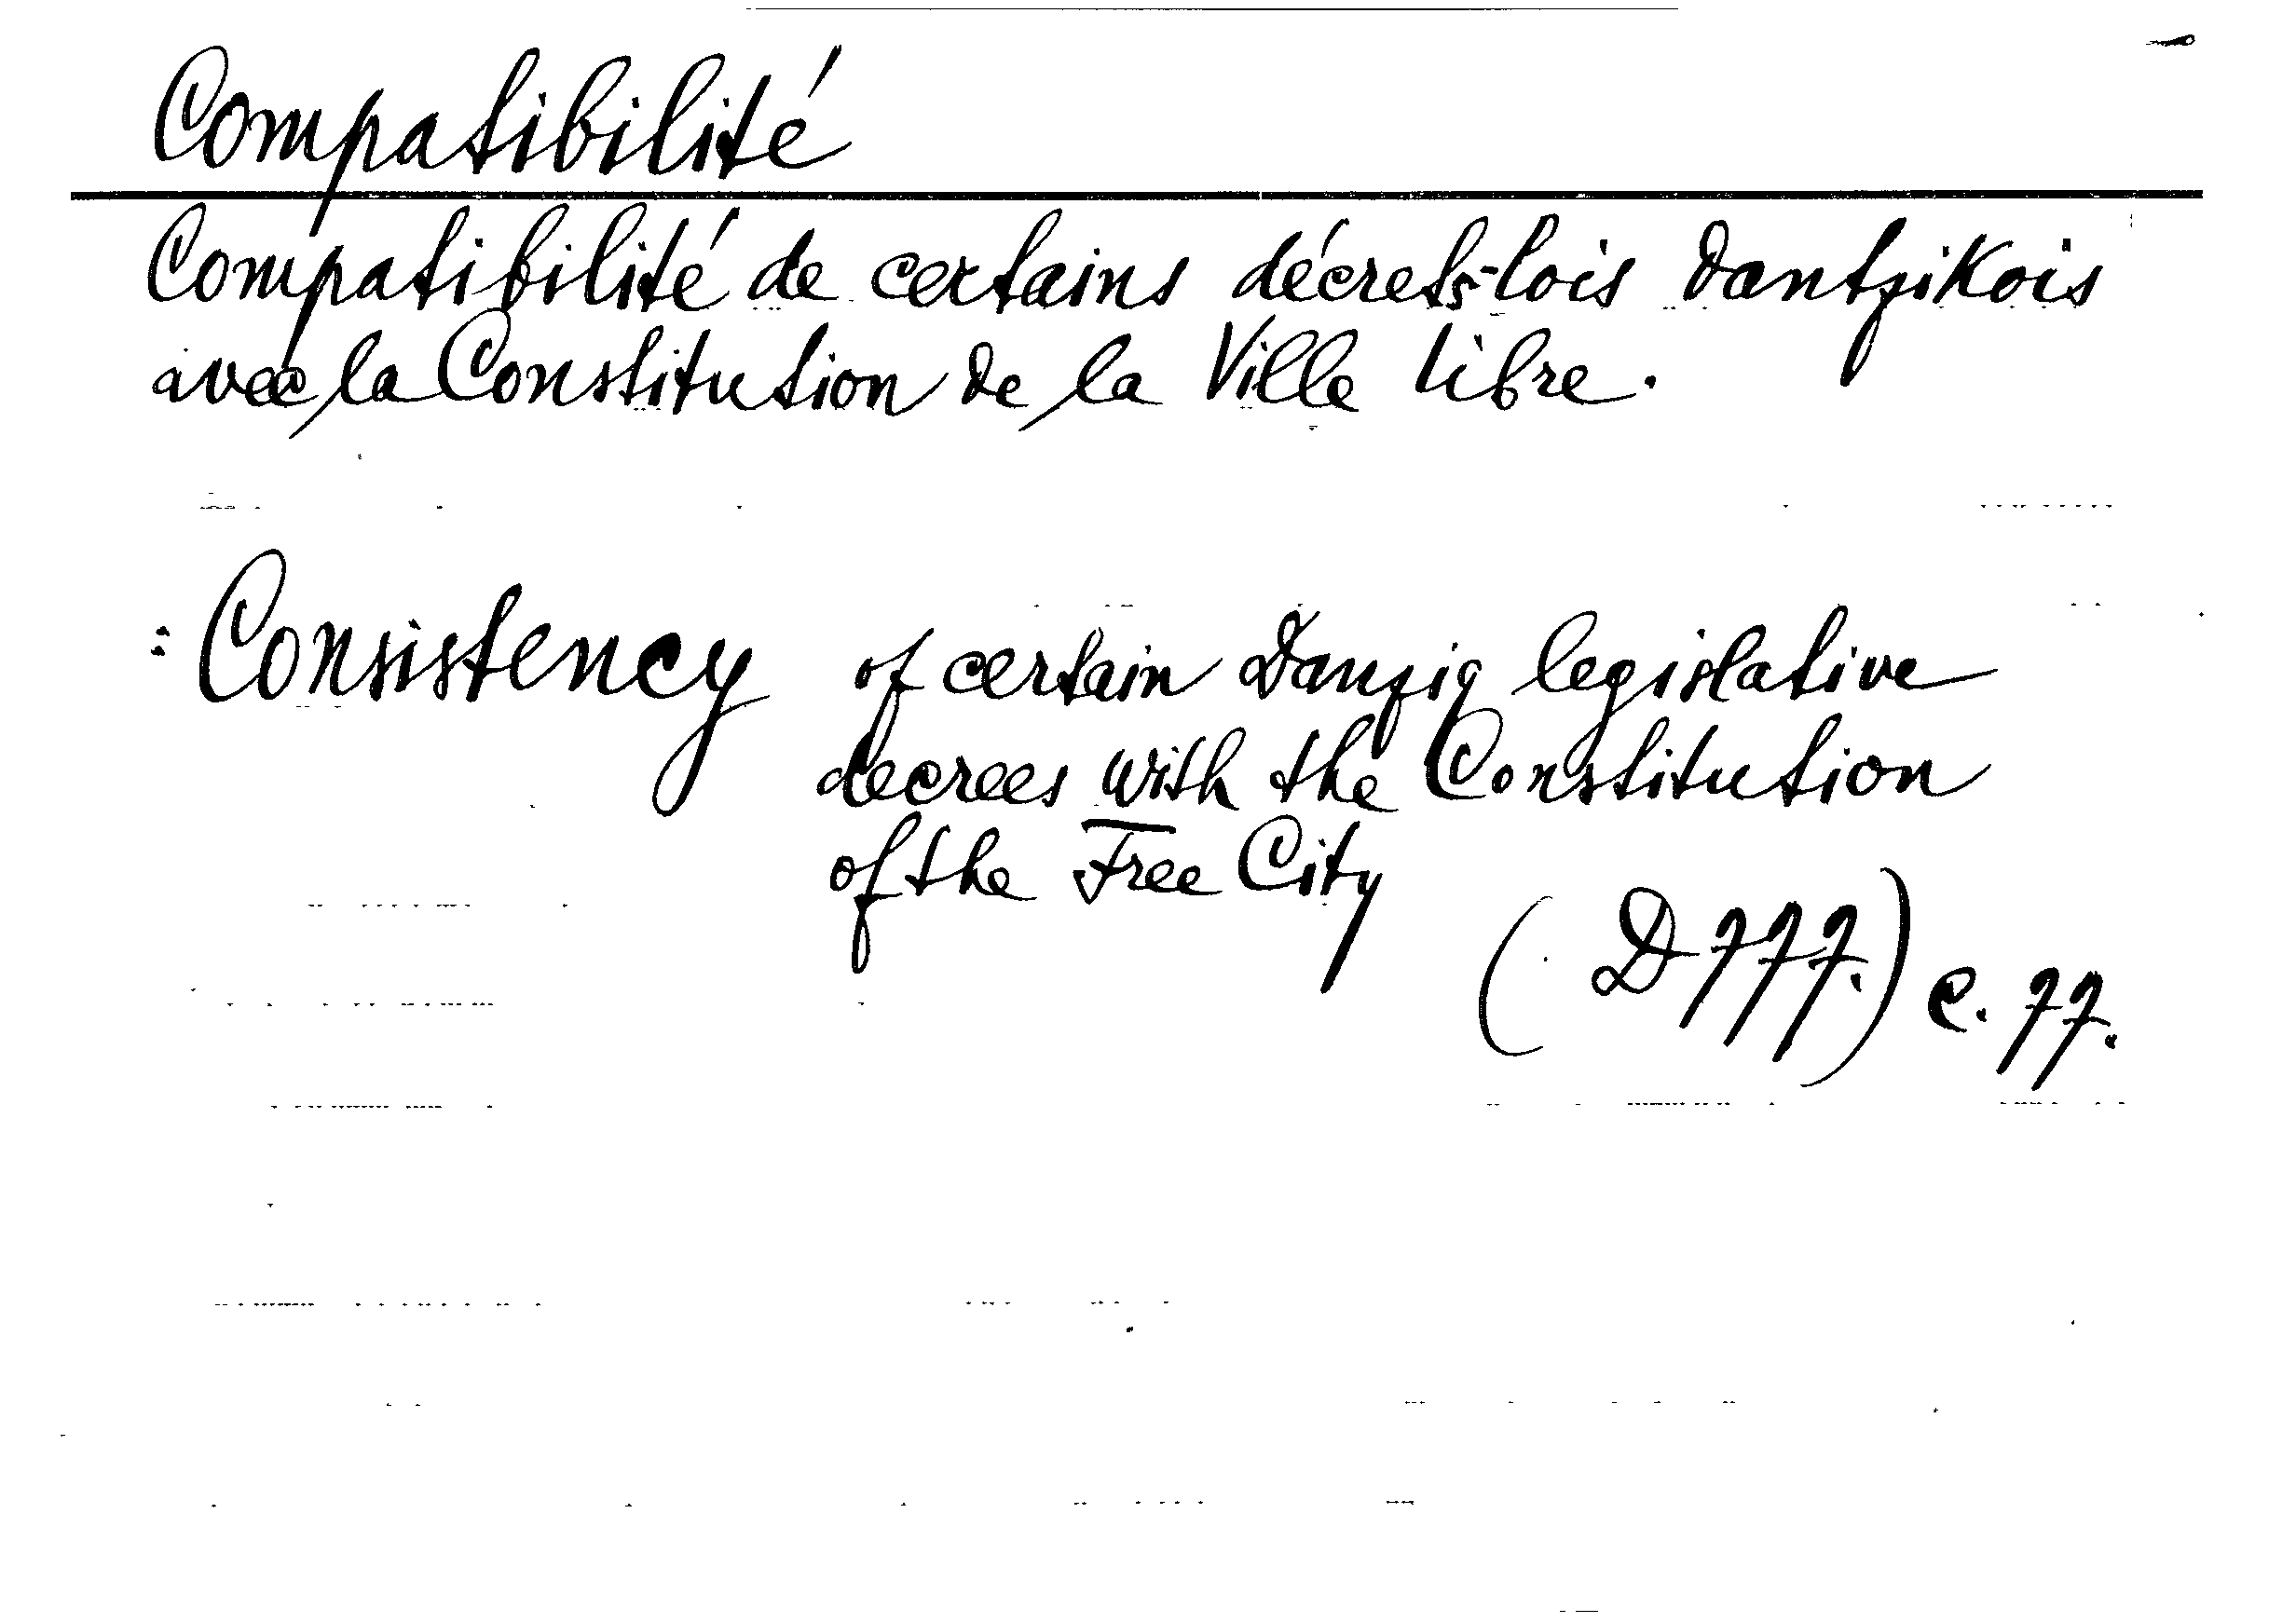 Compatibilité
Compatibilité de certains décrets-lois dantzikois
avec la Constitution de la Ville libre.
: Consistency of certain Danzig legislative
decrees with the Constitution
of the Free City
(D 777.) e. 77.